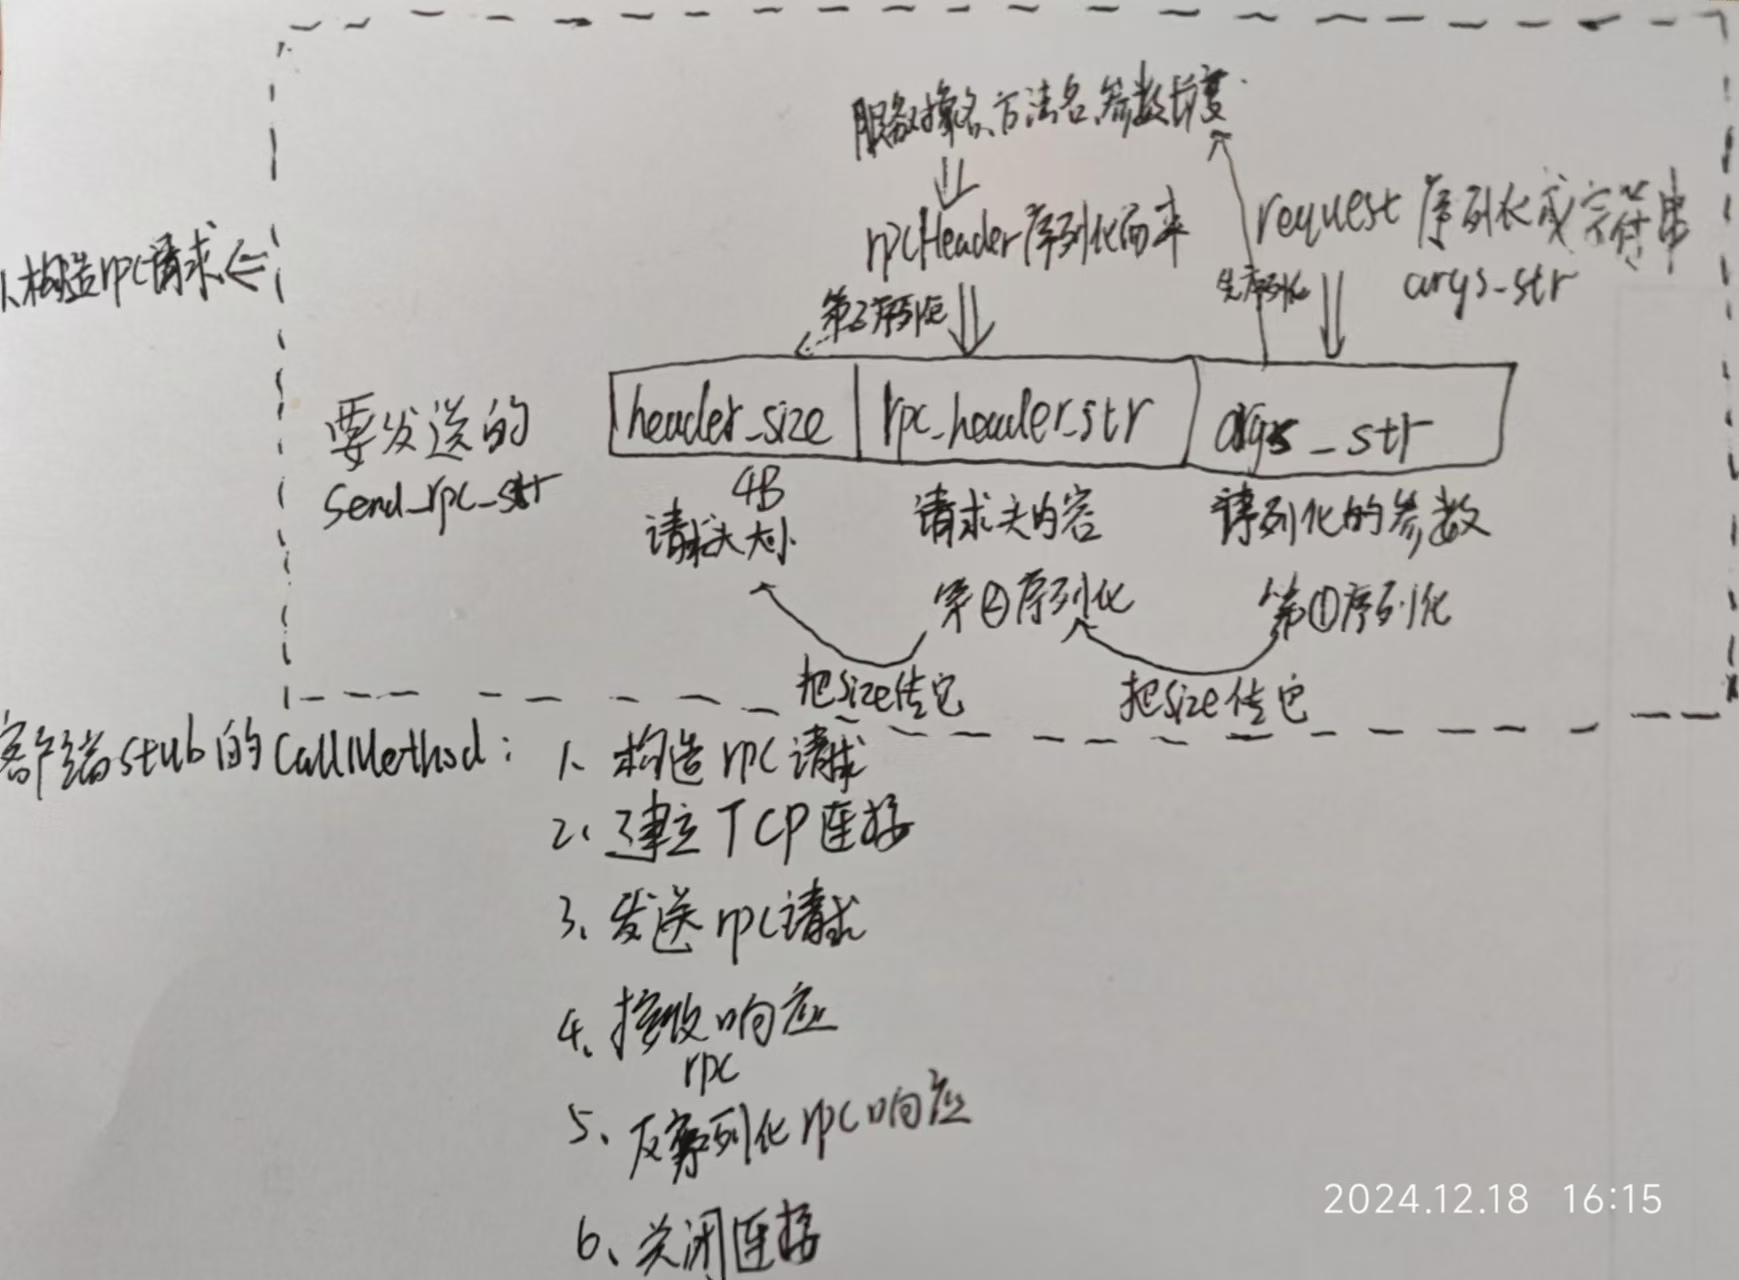 服务对象名、方法名、参数长度
rpcHeader序列化而来
request序列化成字符串
args_str
先序列化
1、构造rpc请求
要发送的
send_rpc_str
header_size
rpc_header_str
args_str
4B
请求头大小
请求头内容
序列化的参数
第②序列化
第①序列化
把size传它
把size传它
客户端stub的CallMethod：
1、构造rpc请求
2、建立TCP连接
3、发送rpc请求
4、接收响应
rpc
5、反序列化rpc响应
6、关闭连接
2024.12.18 16:15